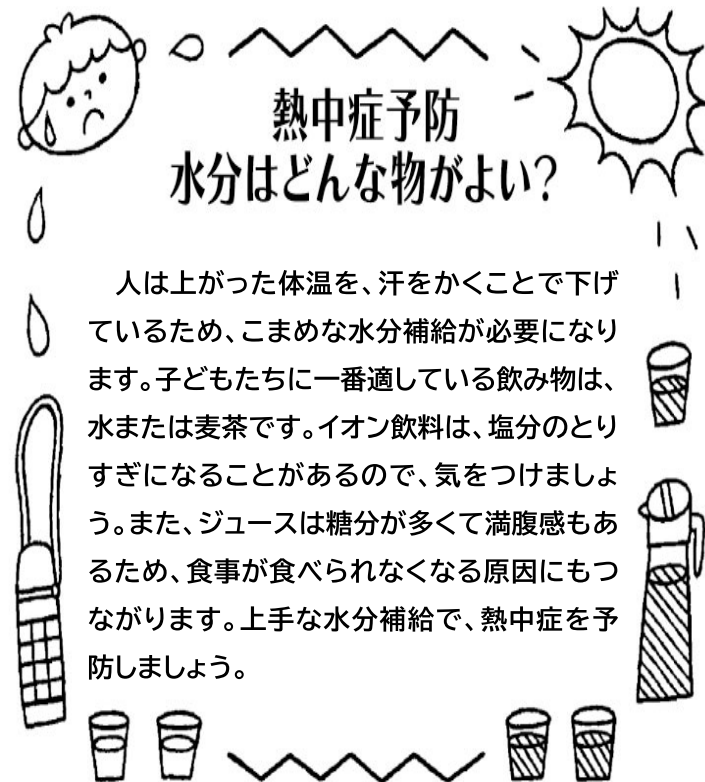 熱中症予防
水分はどんな物がよい？
　人は上がった体温を、汗をかくことで下げ
ているため、こまめな水分補給が必要になり
ます。子どもたちに一番適している飲み物は、
水または麦茶です。イオン飲料は、塩分のとり
すぎになることがあるので、気をつけましょ
う。また、ジュースは糖分が多くて満腹感もあ
るため、食事が食べられなくなる原因にもつ
ながります。上手な水分補給で、熱中症を予
防しましょう。